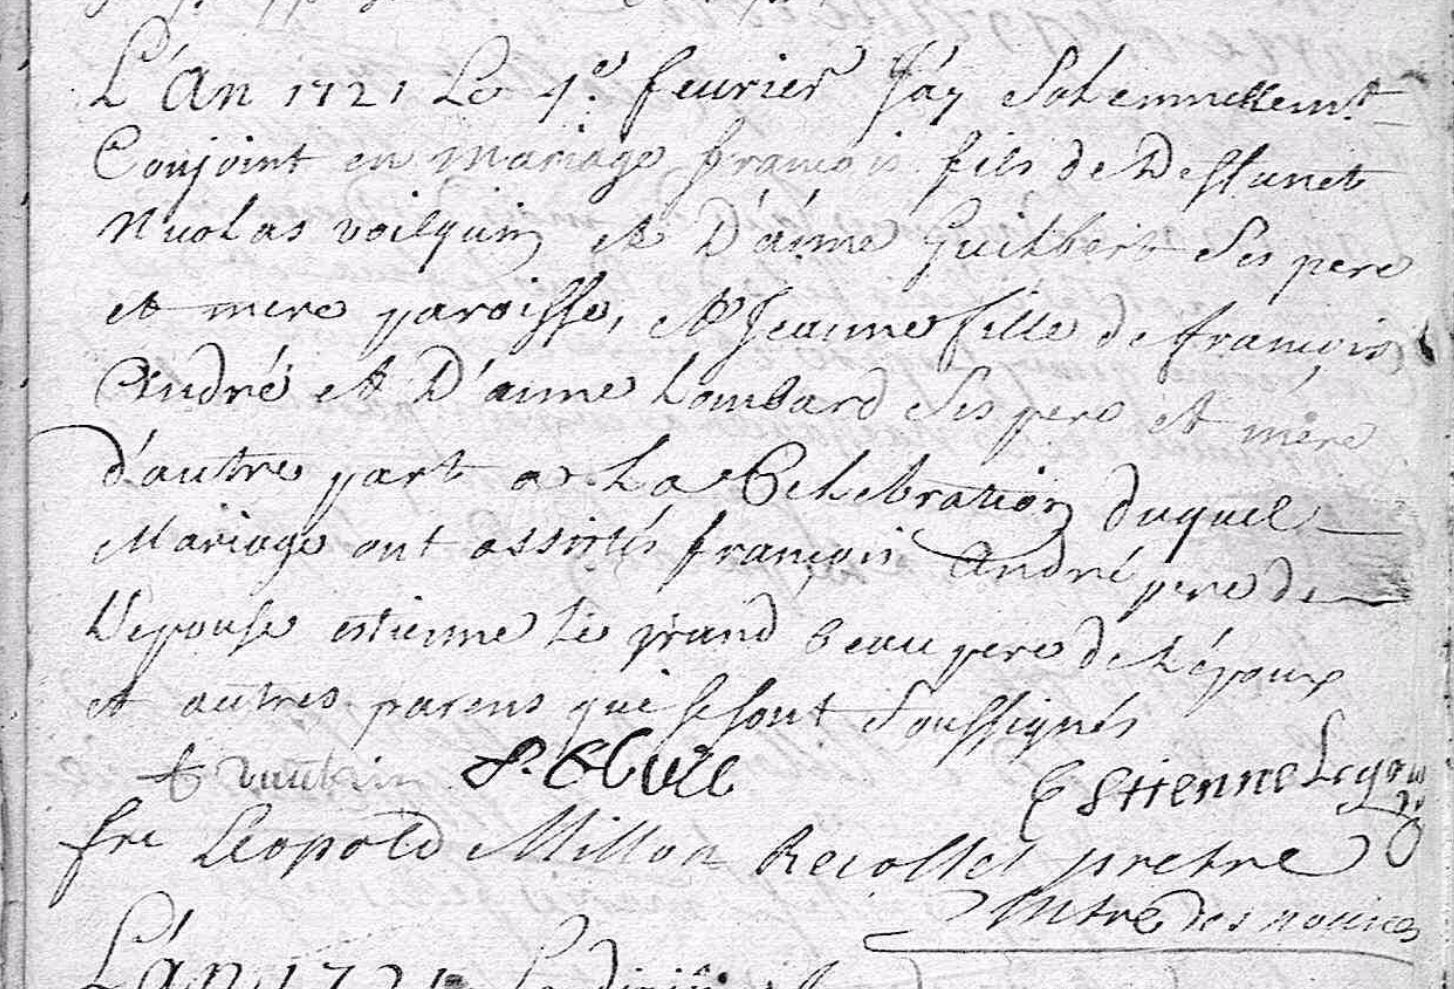 L'An 1721 Le 4e. feurier J'ay Solemnellemt
Conjoint en Mariage françois fils de Deffunct
Nicolas voilquin et D'anne Guilbert Ses pere
et mere paroisse, et Jeanne fille de françois
André et D'anne Lombard Ses pere et mère
d'autre part a La Celebration duquel
Mariage ont assistés françois André pere de
L'epouse estienne Le grand beau pere de L'époux
et autres parens qui se sont Soussignés
Estienne Legrand
fre Leopold Millon Recollet pretre
L'an 1721